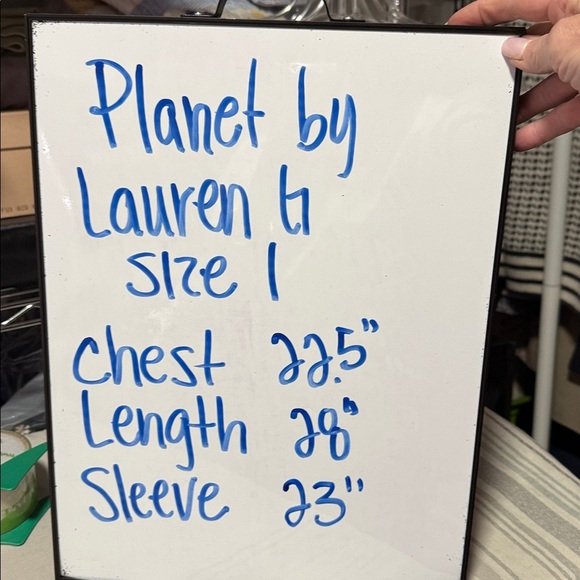 Planet by
Lauren G
size 1
Chest 22.5"
Length 28"
Sleeve 23"